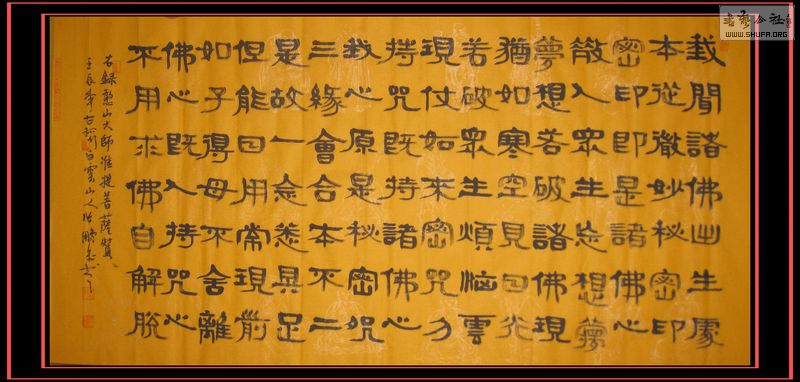 我聞諸佛出生處
本從微妙秘密印
密印即是諸佛心
散入眾生妄想夢
夢想若破諸佛現
猶如寒空見日光
若破眾生煩惱雲
現仗如來密咒力
持咒既持諸佛心
我心原是秘密咒
三緣會合本不二
是故一念悉具足
但能日用常現前
如子得母不舍離
佛心既入持咒心
不用求佛自解脫
右錄憨山大師准提菩薩贊
壬辰年古 白雲山人張鵬
公社
WWW.SHUFA.ORG